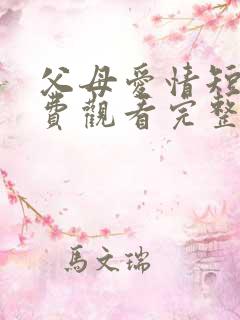 父母愛情短
費觀看完整
馬文瑞